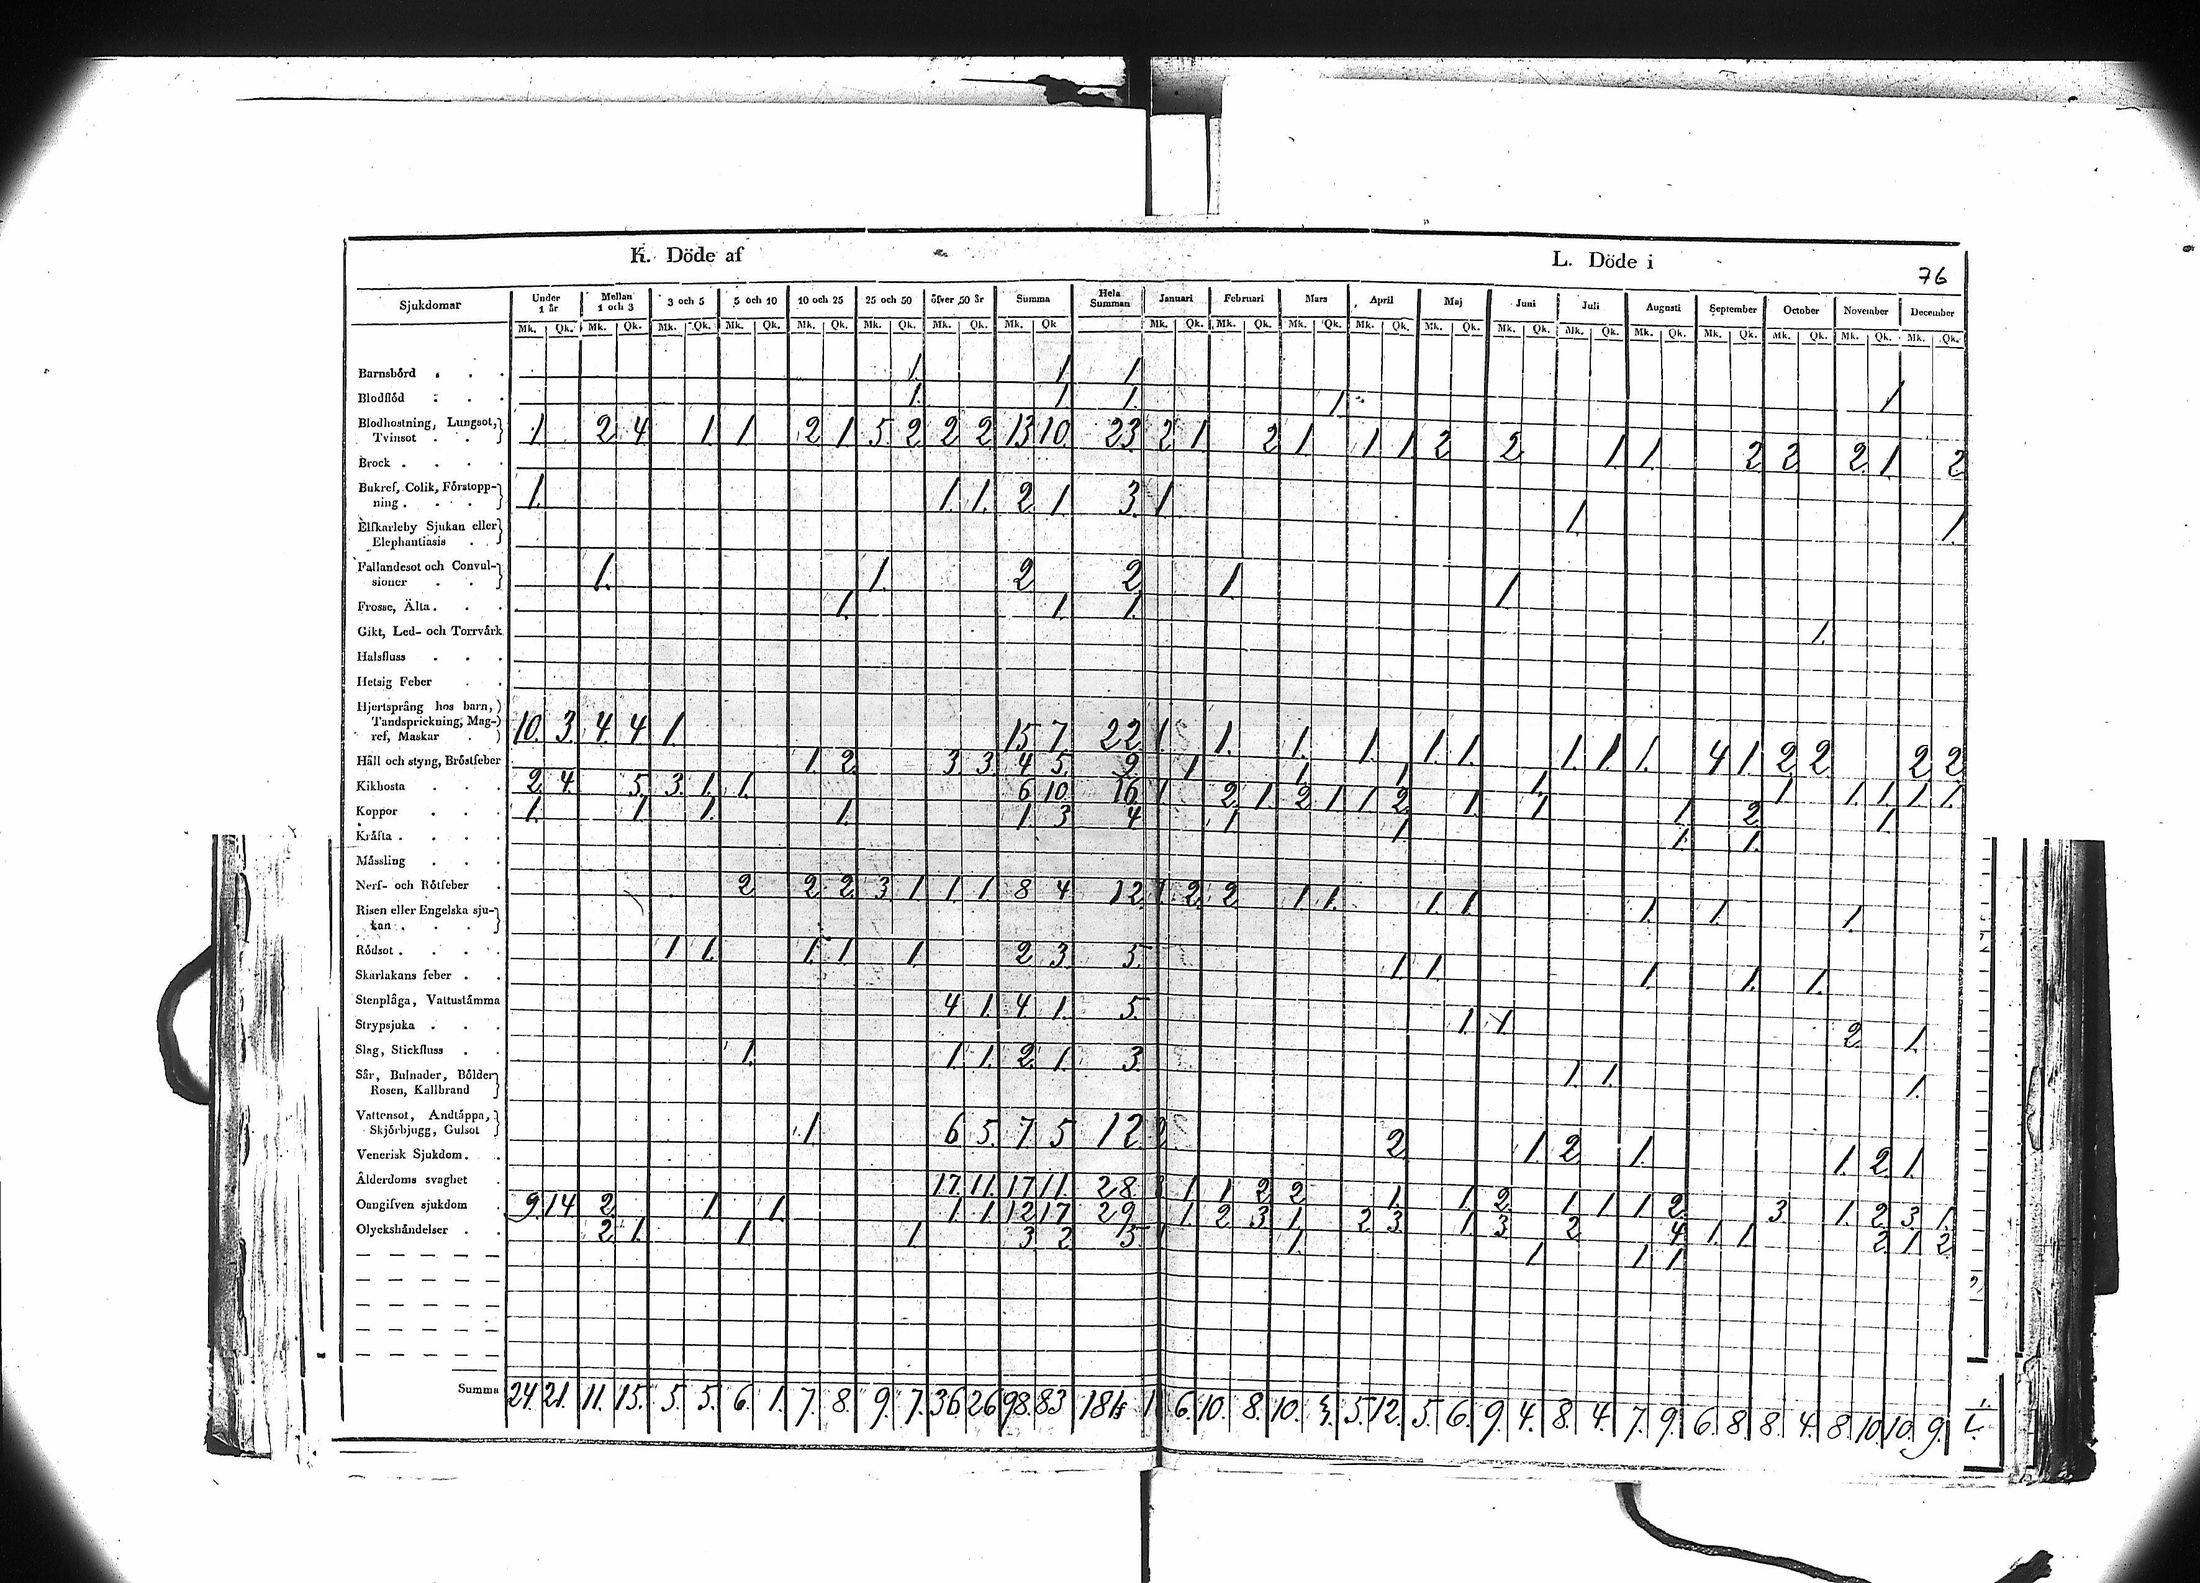 K. Döde af L. Döde i
76
Sjukdomar Under 1 år Mellan 1 och 3 3 och 5 5 och 10 10 och 25 25 och 50 öfver 50 år Summa Hela Summan Januari Februari Mars April Maj Juni Juli Augusti September October November December
Mk. Qk. Mk. Qk. Mk. Qk. Mk. Qk. Mk. Qk. Mk. Qk. Mk. Qk. Mk. Qk Mk. Qk. Mk. Qk. Mk. Qk. Mk. Qk. Mk. Qk. Mk. Qk. Mk. Qk. Mk. Qk. Mk. Qk. Mk. Qk. Mk. Qk. Mk. Qk.
Barnsbörd . . . 1. 1 1. 1
Blodflöd . . . 1. 1 1. 1
Blodhostning, Lungsot,
Tvinsot . . 1 2 4 1 1 2 1 5 2 2 2 13 10 23 2 1 2 1 1 1 2 2 1 1 2 2 2 1 2
Brock . . . .
Bukref, Colik, Förstopp-
ning . . . . 1. 1. 1. 2 1. 3. 1. 1. 1.
Elfkarleby Sjukan eller
Elephantiasis . .
Fallandesot och Convul-
sioner . . 1. 1. 2 2 1. 1
Frosse, Älta . . . 1. 1. 1. 1.
Gikt, Led- och Torrvärk
Halsfluss . . .
Hetsig Feber . .
Hjertsprång hos barn,
Tandsprickning, Mag-
ref, Maskar . 10. 3. 4. 4 1. 15 7. 22 1. 1. 1. 1. 1. 1. 1. 1. 1. 4 1. 2 2 2 2
Håll och styng, Bröstfeber 1. 2. 3 3 4 5. 9. 1 1. 1 1. 1. 1. 1. 1. 1.
Kikhosta . . . 2 4. 5. 3 1. 1. 6 10. 16 1. 2 1. 2 1 1 2 1. 1 1 2 1.
Koppor . . . 1. 1 1. 1. 1. 3 4 1 1 1. 1.
Kräfta . . . .
Måssling . . .
Nerf- och Rötfeber . 2 2 2 3 1 1. 1 8 4 12 1. 2 2 1 1. 1. 1. 1. 1. 1.
Risen eller Engelska sju-
kan . . . .
Rödsot . . . . 1 1. 1. 1. 1. 2 3. 5. 1 1 1. 1. 1.
Skarlakans feber . .
Stenplåga, Vattustämma 4 1. 4 1. 5. 1. 1. 2. 1.
Strypsjuka . . .
Slag, Stickfluss . . 1. 1. 1. 2. 1. 3. 1. 1. 1.
Sår, Bulnader, Bölder
Rosen, Kallbrand
Vattensot, Andtäppa,
Skjörbjugg, Gulsot 1. 6 5. 7. 5 12 2 2 1. 2 1. 1. 2 1.
Venerisk Sjukdom . .
Ålderdoms svaghet . 17 11. 17 11. 28. 1 1 2 2 1. 1. 2. 1. 1 1 2 3 1. 2 3 1.
Oangifven sjukdom . 9. 14 2 1. 1. 1. 1. 12 17 29 1. 2 3 1. 2 3 1. 3 2 4 1. 1 2 1 2
Olyckshändelser . . 2 1. 1. 1. 3. 2. 5. 1 1. 1. 1. 1.
Summa 24. 21. 11. 15. 5. 5. 6. 1. 7. 8. 9. 7. 36 26 98. 83 181 6. 10. 8. 10. 5. 12. 5. 6. 9. 4. 8. 4. 7. 9. 6. 8. 8. 4. 8. 10. 10. 9.